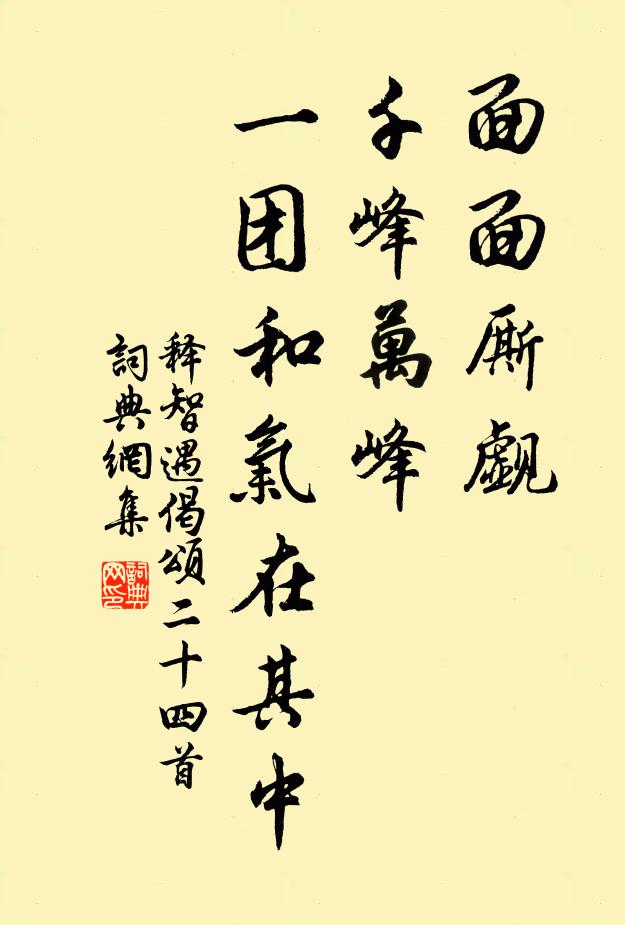 面面厮觑
千峰萬峰
一团和氣在其中
释智遇偈頌二十四首
詞典網集
詞典网印